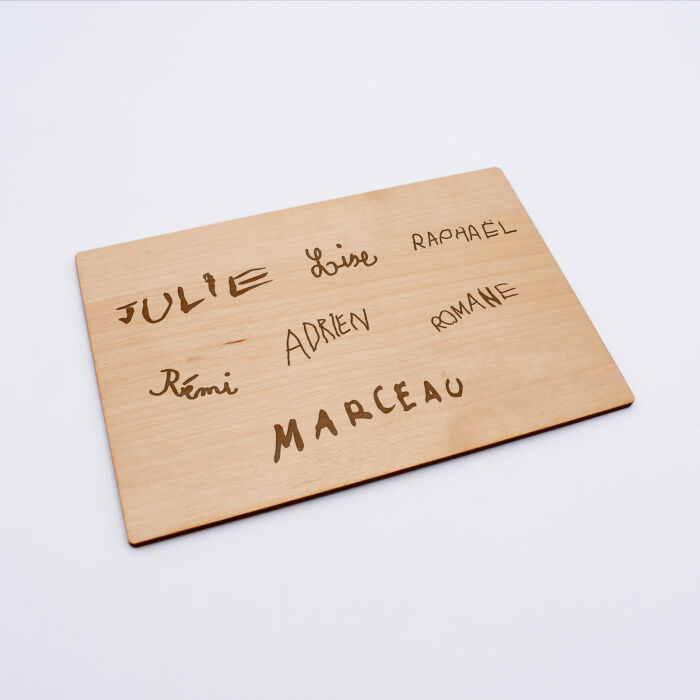 JULIE Lise RAPHAËL
Rémi ADRIEN ROMANE
MARCEAU